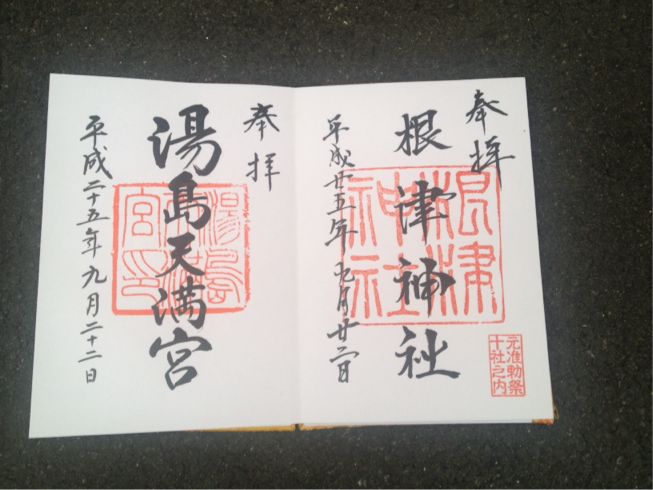 奉拝
根津神社
平成廿五年九月廿二日
根津神社
元准勅祭
十社之内
奉拝
湯島天満宮
平成二十五年九月二十二日
湯島天満宮印